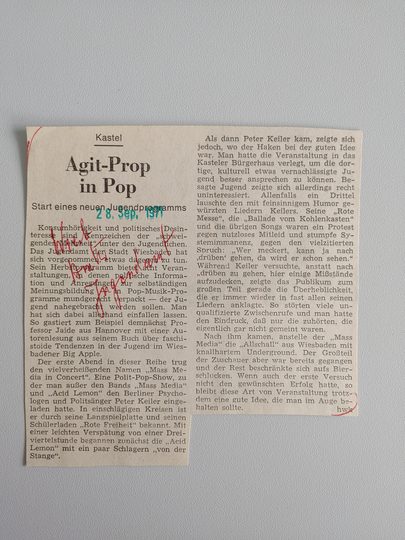 Kastel
Agit-Prop
in Pop
Start eines neuen Jugendprogramms
28. Sep. 1971
Konsumhörigkeit und politisches Desin-
teresse sind Kennzeichen der überwie-
genden der Jugendlichen.
Das Jugendamt der Stadt Wiesbaden hat
sich vorgenommen, etwas dagegen zu tun.
Sein Herbstprogramm bietet Veran-
staltungen, in denen Information
und Anregung zur selbständigen
Meinungsbildung in Pop-Musik-Pro-
gramme mundgerecht verpackt — der Ju-
gend nahegebracht werden sollen. Man
hat sich dabei allerhand einfallen lassen.
So gastiert zum Beispiel demnächst Pro-
fessor Jaide aus Hannover mit einer Au-
torenlesung aus seinem Buch über faschi-
stoide Tendenzen in der Jugend im Wies-
badener Big Apple.
Der erste Abend in dieser Reihe trug
den vielverheißenden Namen „Mass Me-
dia in Concert". Eine Polit-Pop-Show, zu
der man außer den Bands "Mass Media"
und "Acid Lemon" den Berliner Psycholo-
gen und Politsänger Peter Keiler einge-
laden hatte. In einschlägigen Kreisen ist
er durch seine Langspielplatte und seinen
Schülerladen „Rote Freiheit" bekannt. Mit
einer leichten Verspätung von einer Drei-
viertelstunde begannen zunächst die „Acid
Lemon" mit ein paar Schlagern „von der
Stange".
Als dann Peter Keiler kam, zeigte sich
jedoch, wo der Haken bei der guten Idee
war. Man hatte die Veranstaltung in das
Kasteler Bürgerhaus verlegt, um die dor-
tige, kulturell etwas vernachlässigte Ju-
gend besser ansprechen zu können. Be-
sagte Jugend zeigte sich allerdings recht
uninteressiert. Allenfalls ein Drittel
lauschte den mit feinsinnigem Humor ge-
würzten Liedern Keilers. Seine „Rote
Messe", die „Ballade vom Kohlenkasten"
und die übrigen Songs waren ein Protest
gegen nutzloses Mitleid und stumpfe Sy-
stemimmanenz, gegen den vielzitierten
Spruch: „Wer meckert, kann ja nach
‚drüben' gehen, da wird er schon sehen."
Während Keiler versuchte, anstatt nach
‚drüben zu gehen, hier einige Mißstände
aufzudecken, zeigte das Publikum zum
großen Teil gerade die Überheblichkeit,
die er immer wieder in fast allen seinen
Liedern anklagte. So störten viele un-
qualifizierte Zwischenrufe und man hatte
den Eindruck, daß nur die zuhörten, die
eigentlich gar nicht gemeint waren.
Nach ihm kamen, anstelle der „Mass
Media" die „Allschall" aus Wiesbaden mit
knallhartem Underground. Der Großteil
der Zuschauer aber war bereits gegangen
und der Rest beschränkte sich aufs Bier-
schlucken. Wenn auch der erste Versuch
nicht den gewünschten Erfolg hatte, so
bleibt diese Art von Veranstaltung trotz-
dem eine gute Idee, die man im Auge be-
halten sollte.
hwk